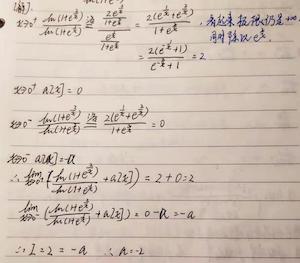 [解].
lim x→0⁺ ln(1+e^{2/x}) / ln(1+e^{1/x}) = (2e^{2/x} / (1+e^{2/x})) / (e^{1/x} / (1+e^{1/x})) = 2(e^{1/x}+e^{2/x}) / (1+e^{2/x})
同时除以 e^{2/x}
= 2(e^{-1/x}+1) / (e^{-2/x}+1) = 2
x→0⁺ a[x] = 0
x→0⁻ ln(1+e^{2/x}) / ln(1+e^{1/x}) = 2(e^{1/x}+e^{2/x}) / (1+e^{2/x}) = 0
x→0⁻ a[x] = -a
∴ lim x→0⁺ (ln(1+e^{2/x}) / ln(1+e^{1/x}) + a[x]) = 2+0=2
lim x→0⁻ (ln(1+e^{2/x}) / ln(1+e^{1/x}) + a[x]) = 0-a = -a
∴ I = 2 = -a ∴ a=-2